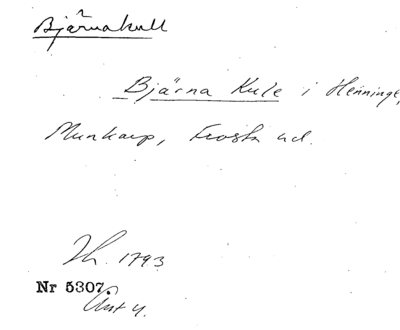 Bjärnakull
Bjärna Kulle i Henninge,
Munkarp, Frosta hd.
Jb. 1793
Nr 5307.
Ant 4.